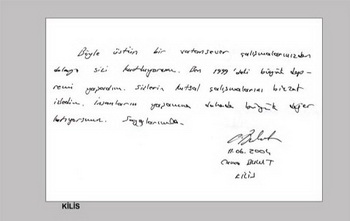 Böyle üstün bir vatansever çalışmalarınızdan
dolayı sizi kutluyorum. Ben 1999'daki büyük dep-
remi yaşadım. Sizlerin kutsal çalışmalarını bizzat
izledim. İnsanların yaşamına dahada büyük değer
katıyorsunuz. Saygılarımla.
11.06.2004
KİLİS
KİLİS